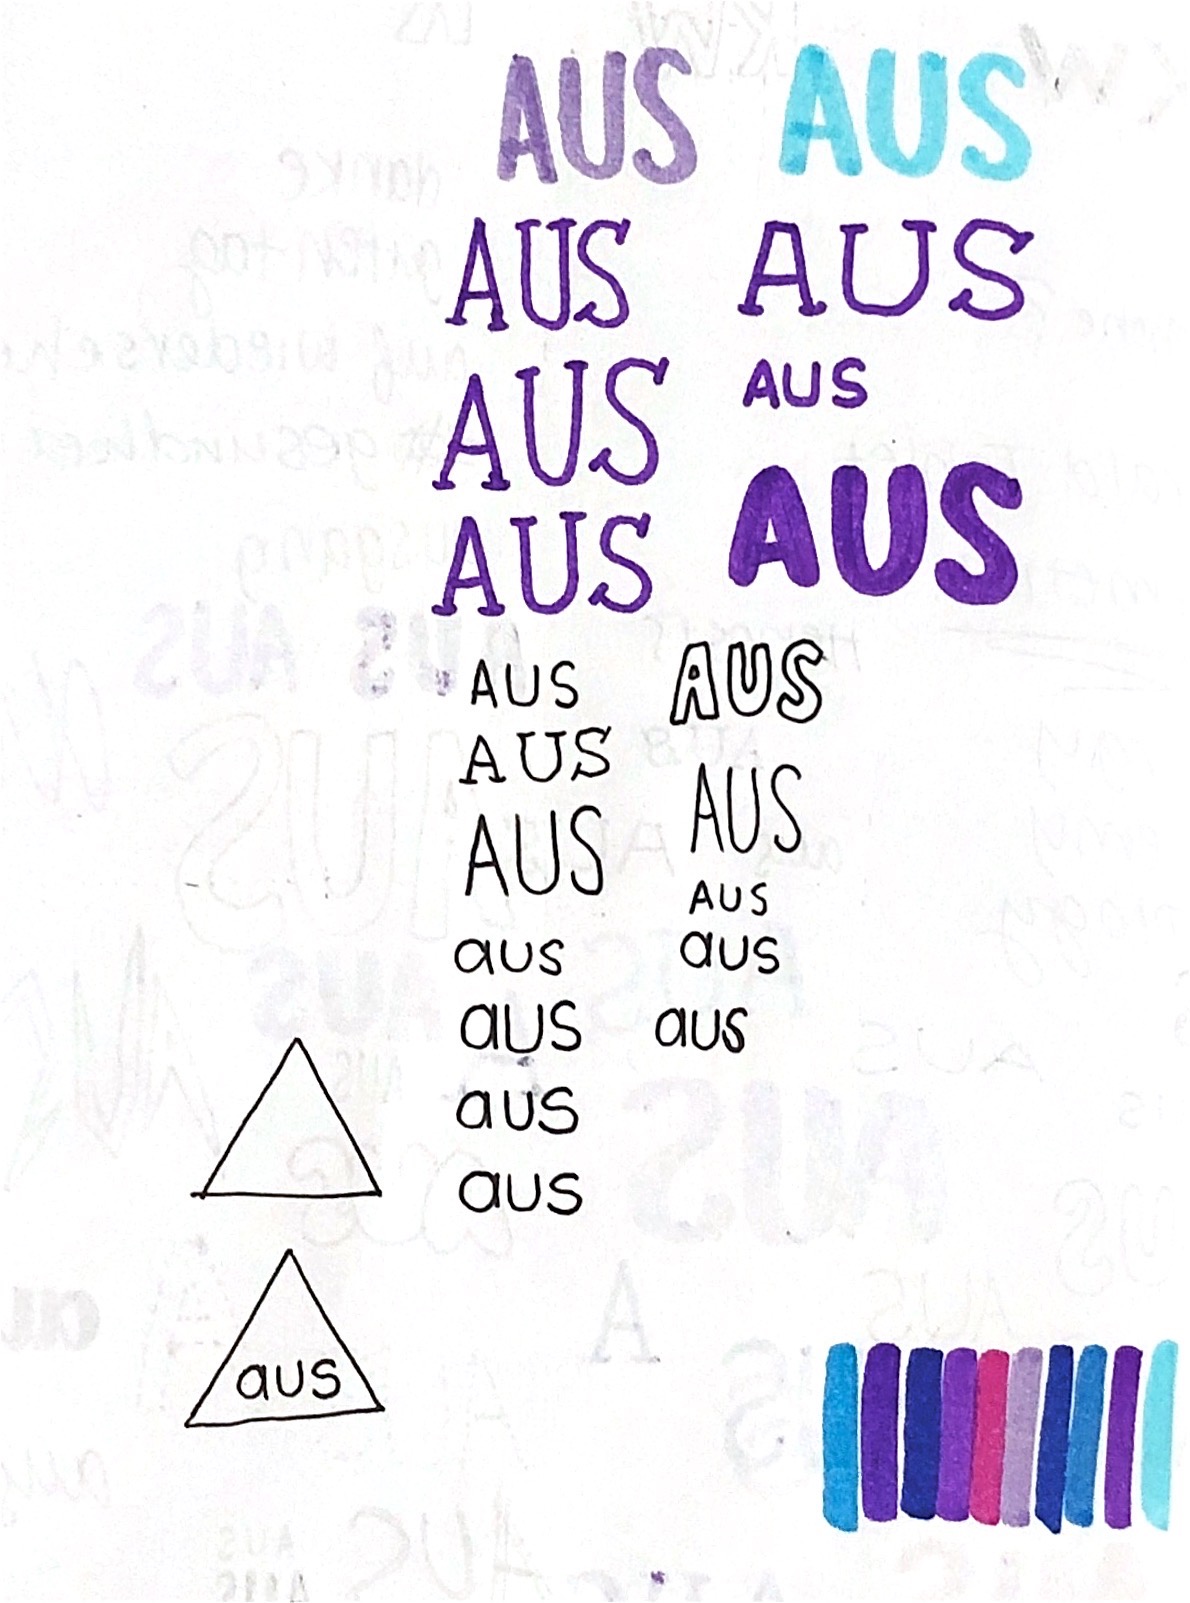 AUS AUS
AUS AUS
AUS AUS
AUS AUS
AUS AUS
AUS AUS
AUS AUS
aus aus
aus aus
aus
aus
aus